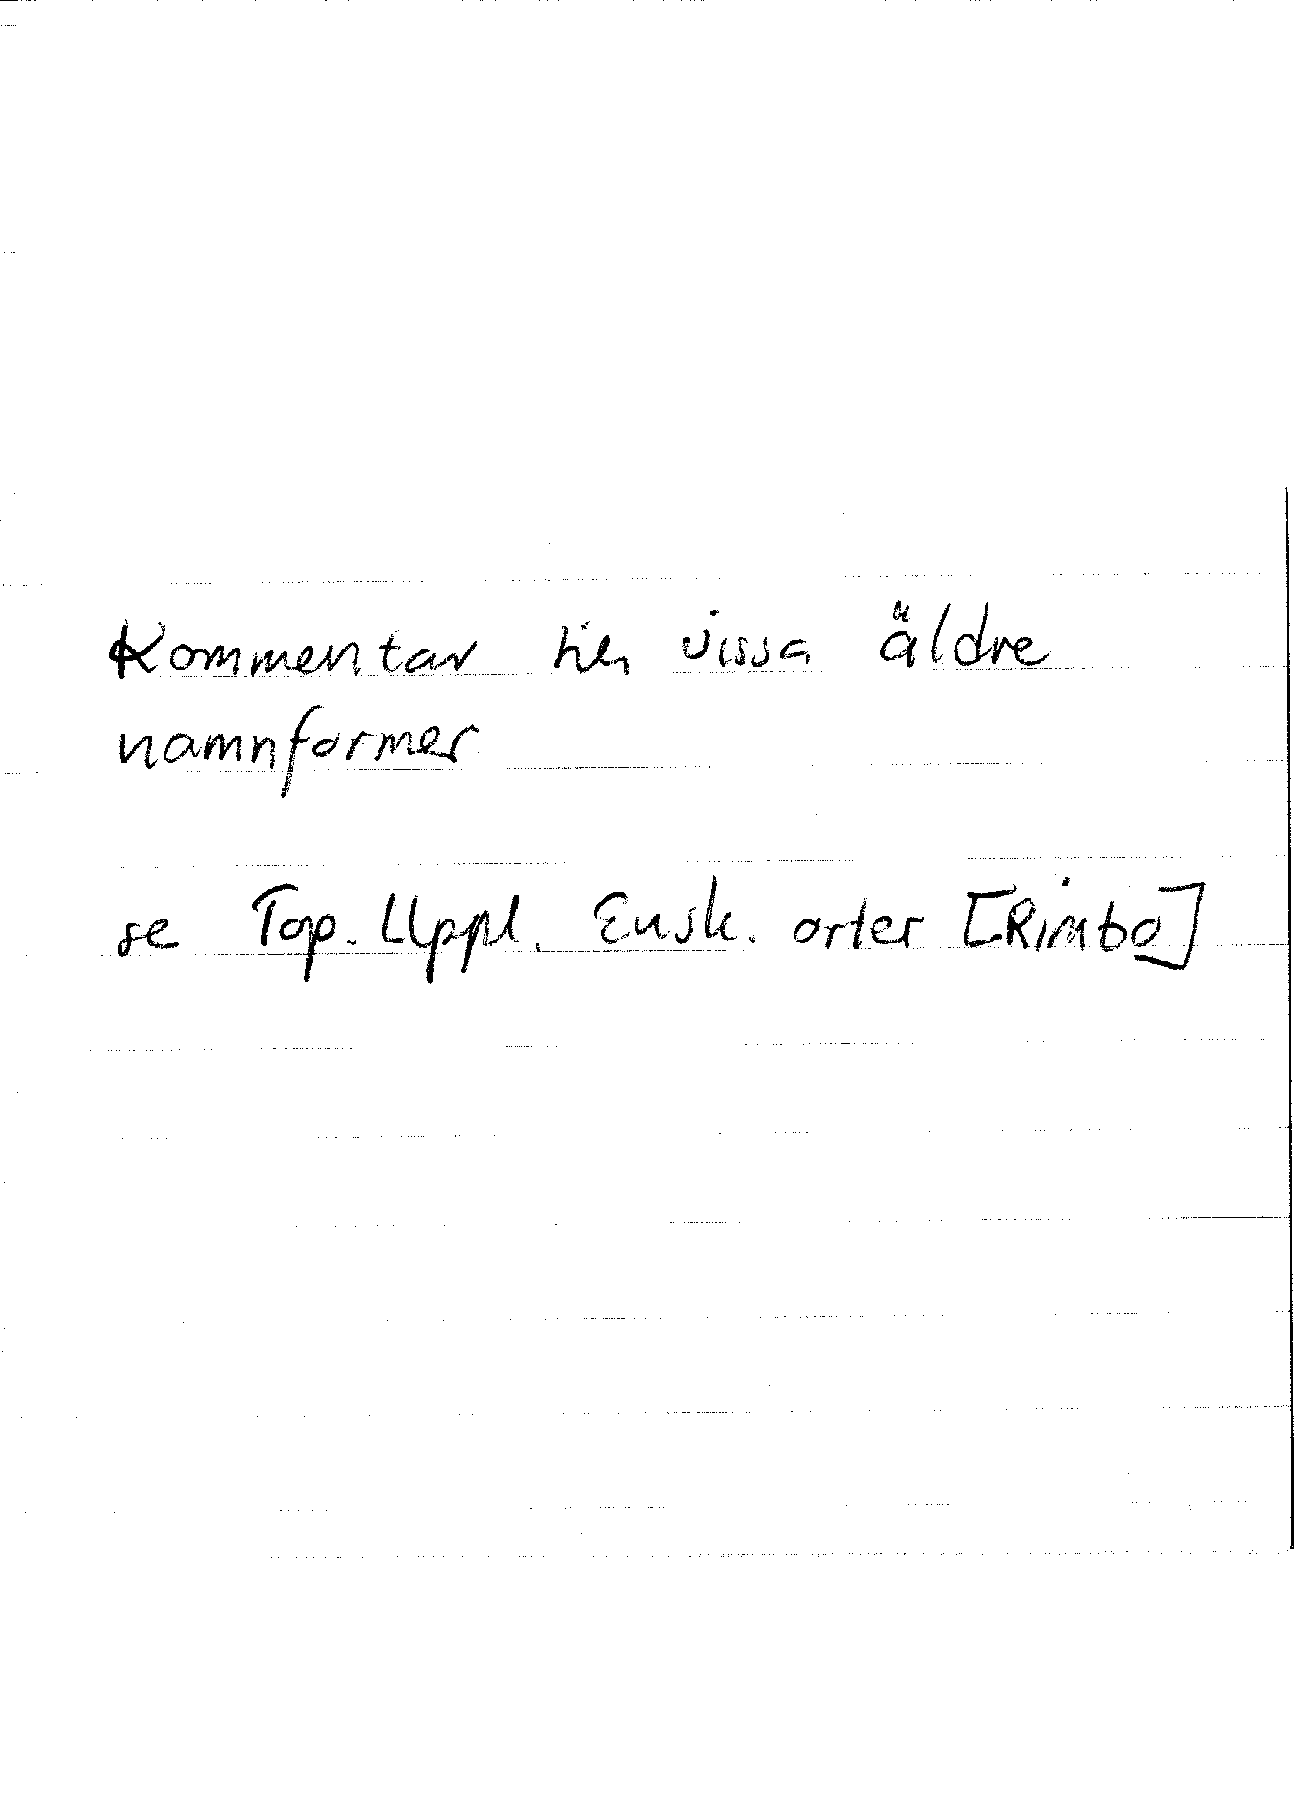 Kommentar till vissa äldre
namnformer
se Top. Uppl. Ensk. orter [Rimbo]